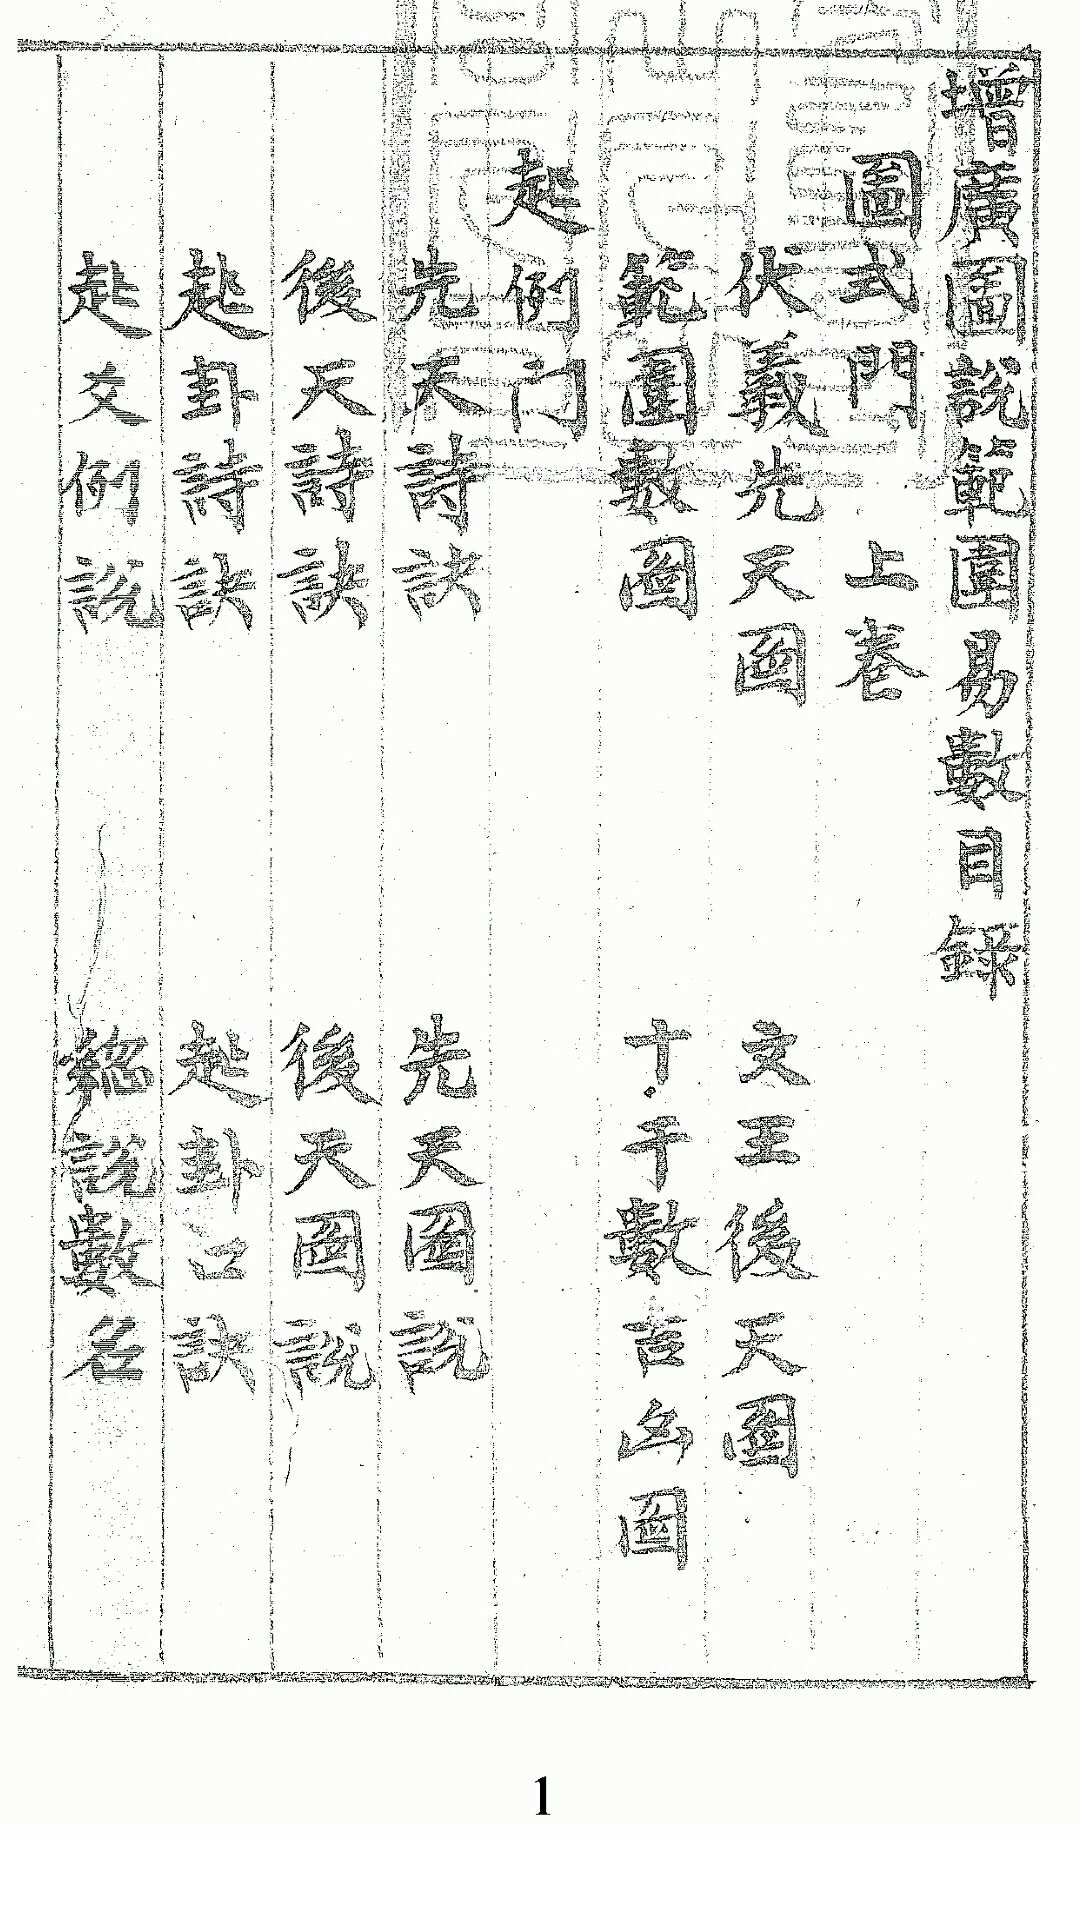 增廣圖說範圍易數目錄
圖式門 上卷
伏羲先天圖 文王後天圖
範圍數圖 十干數吉凶圖
起例門
先天詩訣 先天圖說
後天詩訣 後天圖說
起卦詩訣 起卦口訣
起爻例說 總說數名
1